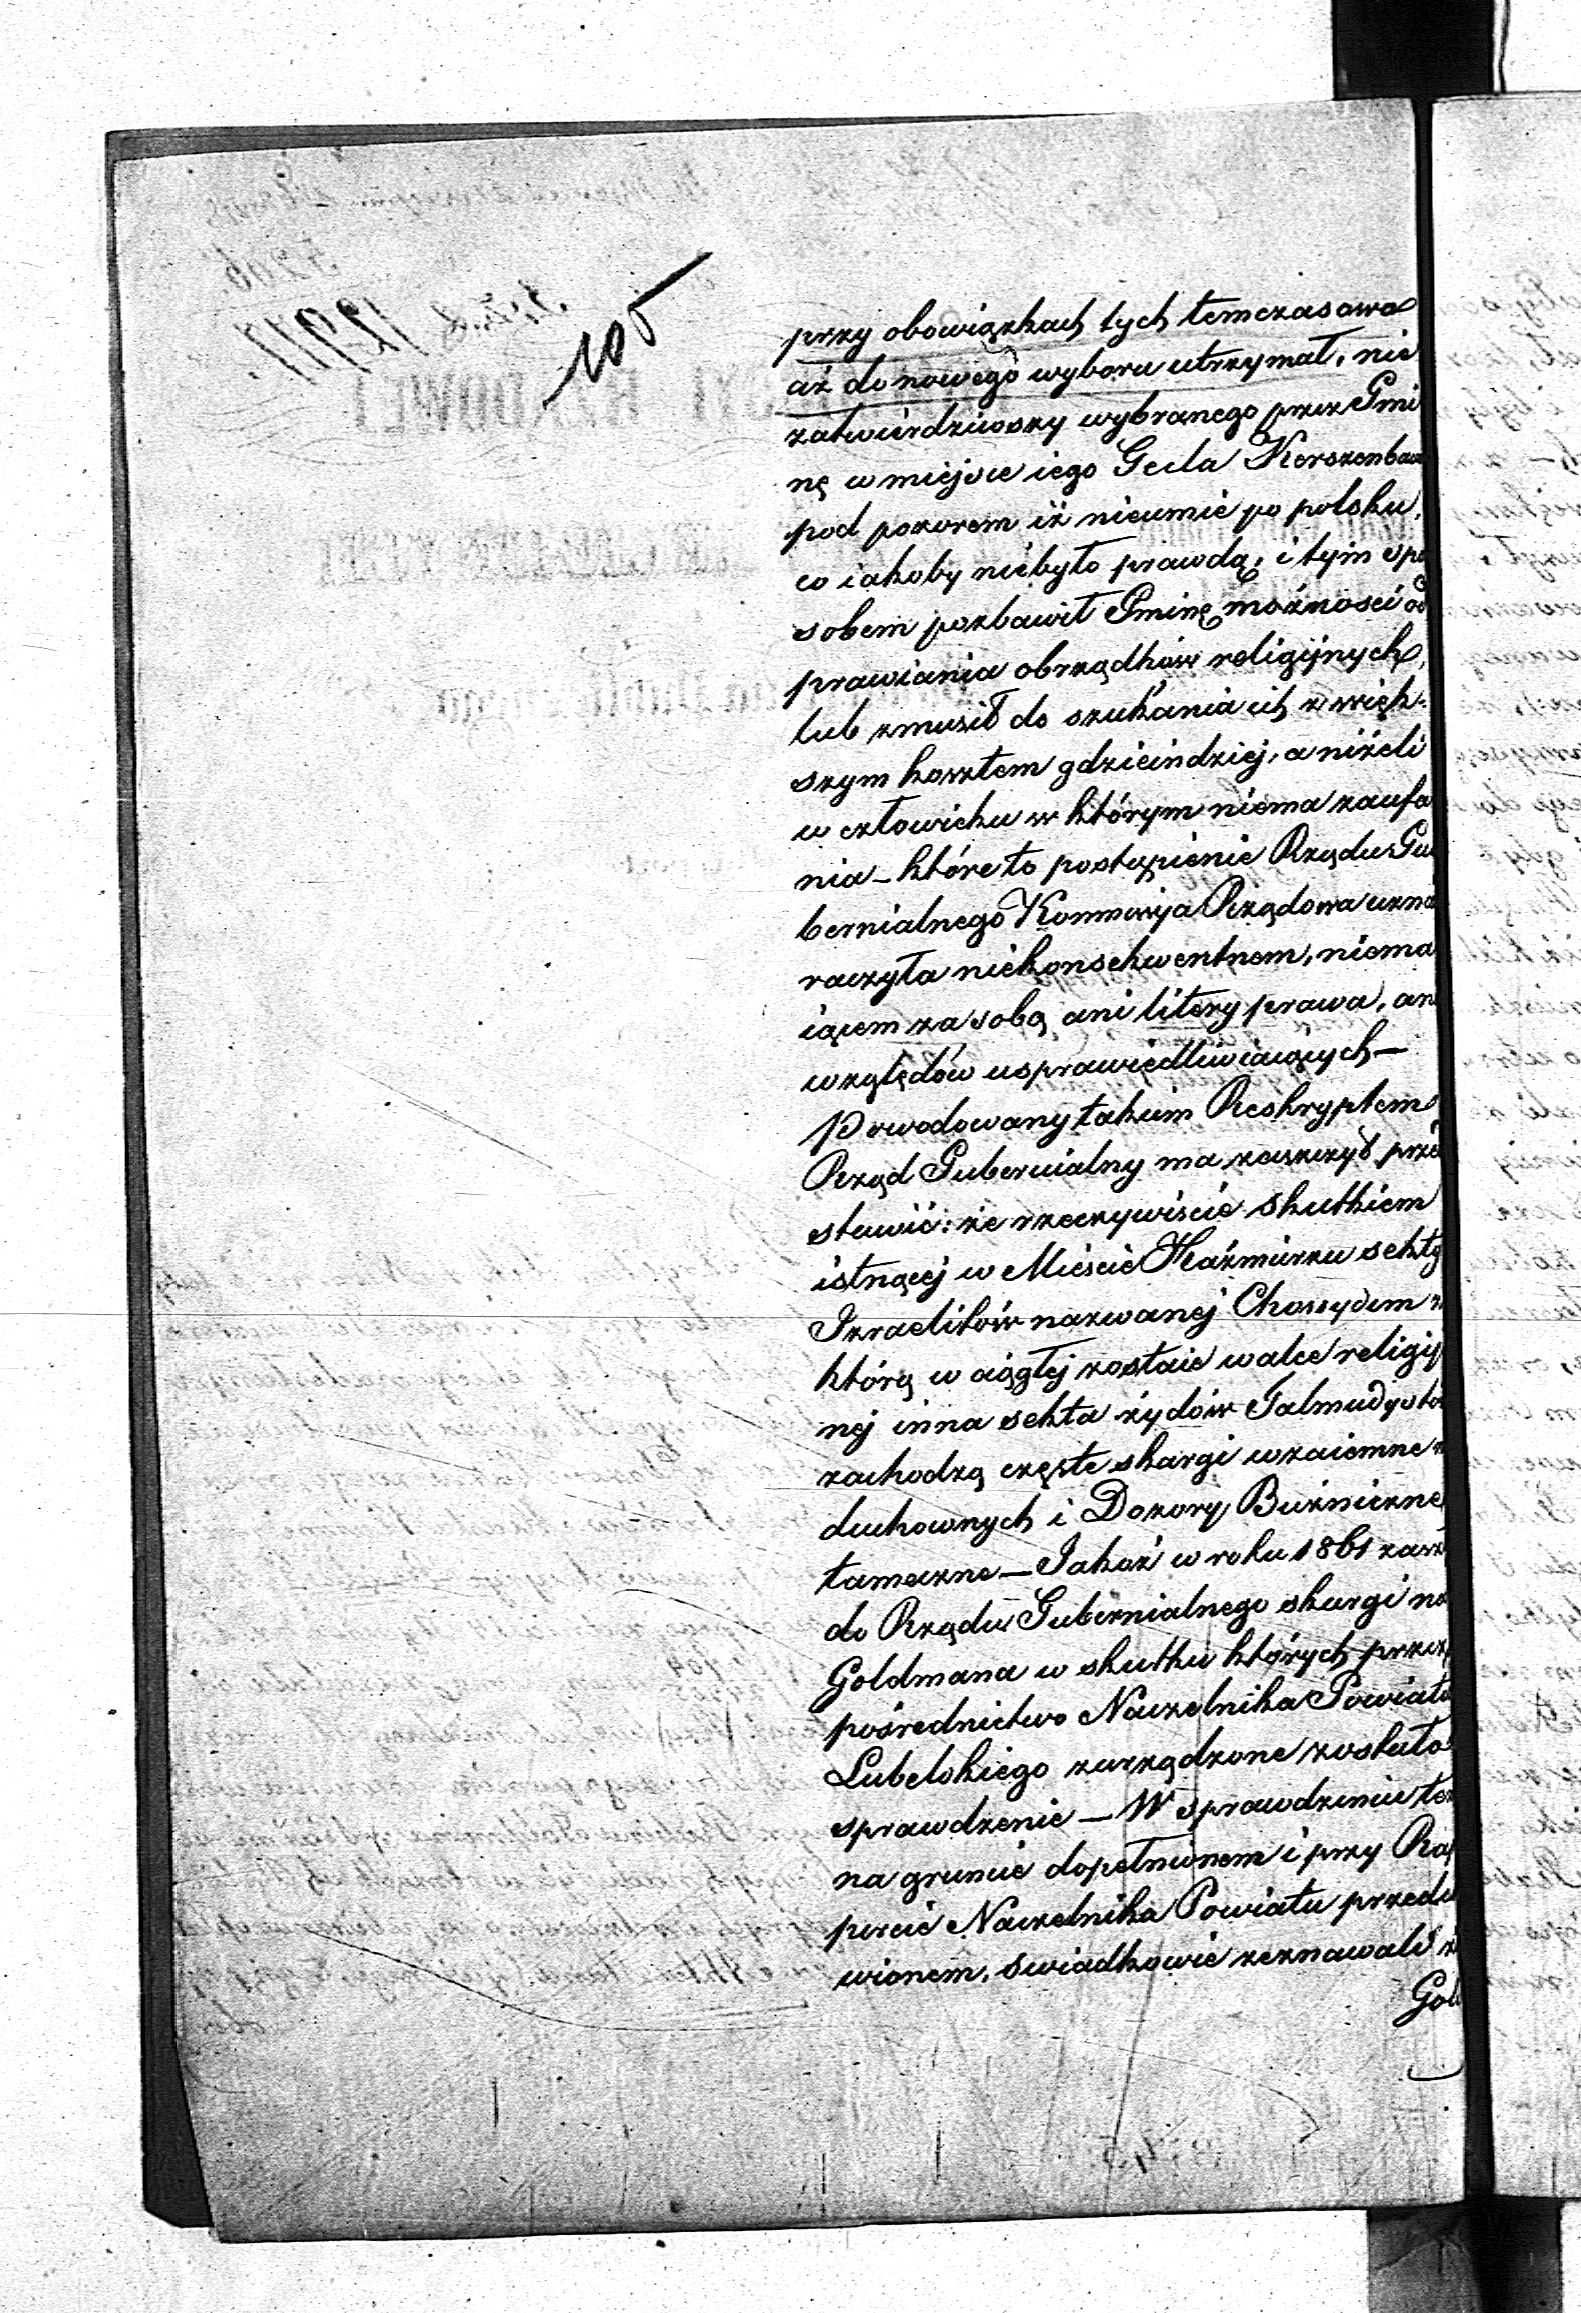 105
przy obowiązkach tych temczasowo
aż do nowego wyboru utrzymał, nie
zatwierdziwszy wybranego przez Gmi
nę w miejsce iego Gecla Kerszenbau
pod pozorem iż nieumie po polsku,
co iakoby niebyło prawdą, i tym spo
sobem pozbawił Gminę możności od
prawiania obrządków religijnych,
lub zmusił do szukania ich z więk-
szym kosztem gdzieindziej, a niżeli
w człowieku w którym niema zaufa
nia – które to postąpienie Rządu Gu
bernialnego Kommissyja Rządowa uzna
raczyła niekonsekwentnem, niema
iącem za sobą ani litery prawa, an
względów usprawiedliwiaiących –
Powodowany takim Reskryptem
Rząd Gubernialny ma zaszczyt prze
stawić: że rzeczywiście skutkiem
istnącej w Mieście Kaźmierzu sekty
Izraelitów nazwanej Chossydem z
którą w ciągłej zostaie walce religij
nej inna sekta żydów Talmudystów
zachodzą częste skargi wzaiemne n
duchownych i Dozory Bużniczne
tameczne – Jakoż w roku 1861 zasz
do Rządu Gubernialnego skargi na
Goldmana w skutku których przez
pośrednictwo Naczelnika Powiatu
Lubelskiego zarządzone zostało
sprawdzenie – W sprawdzeniu tem
na gruncie dopełnionem i przy Rap
porcie Naczelnika Powiatu przedst
wionem, swiadkowie zeznawali ż
Gol